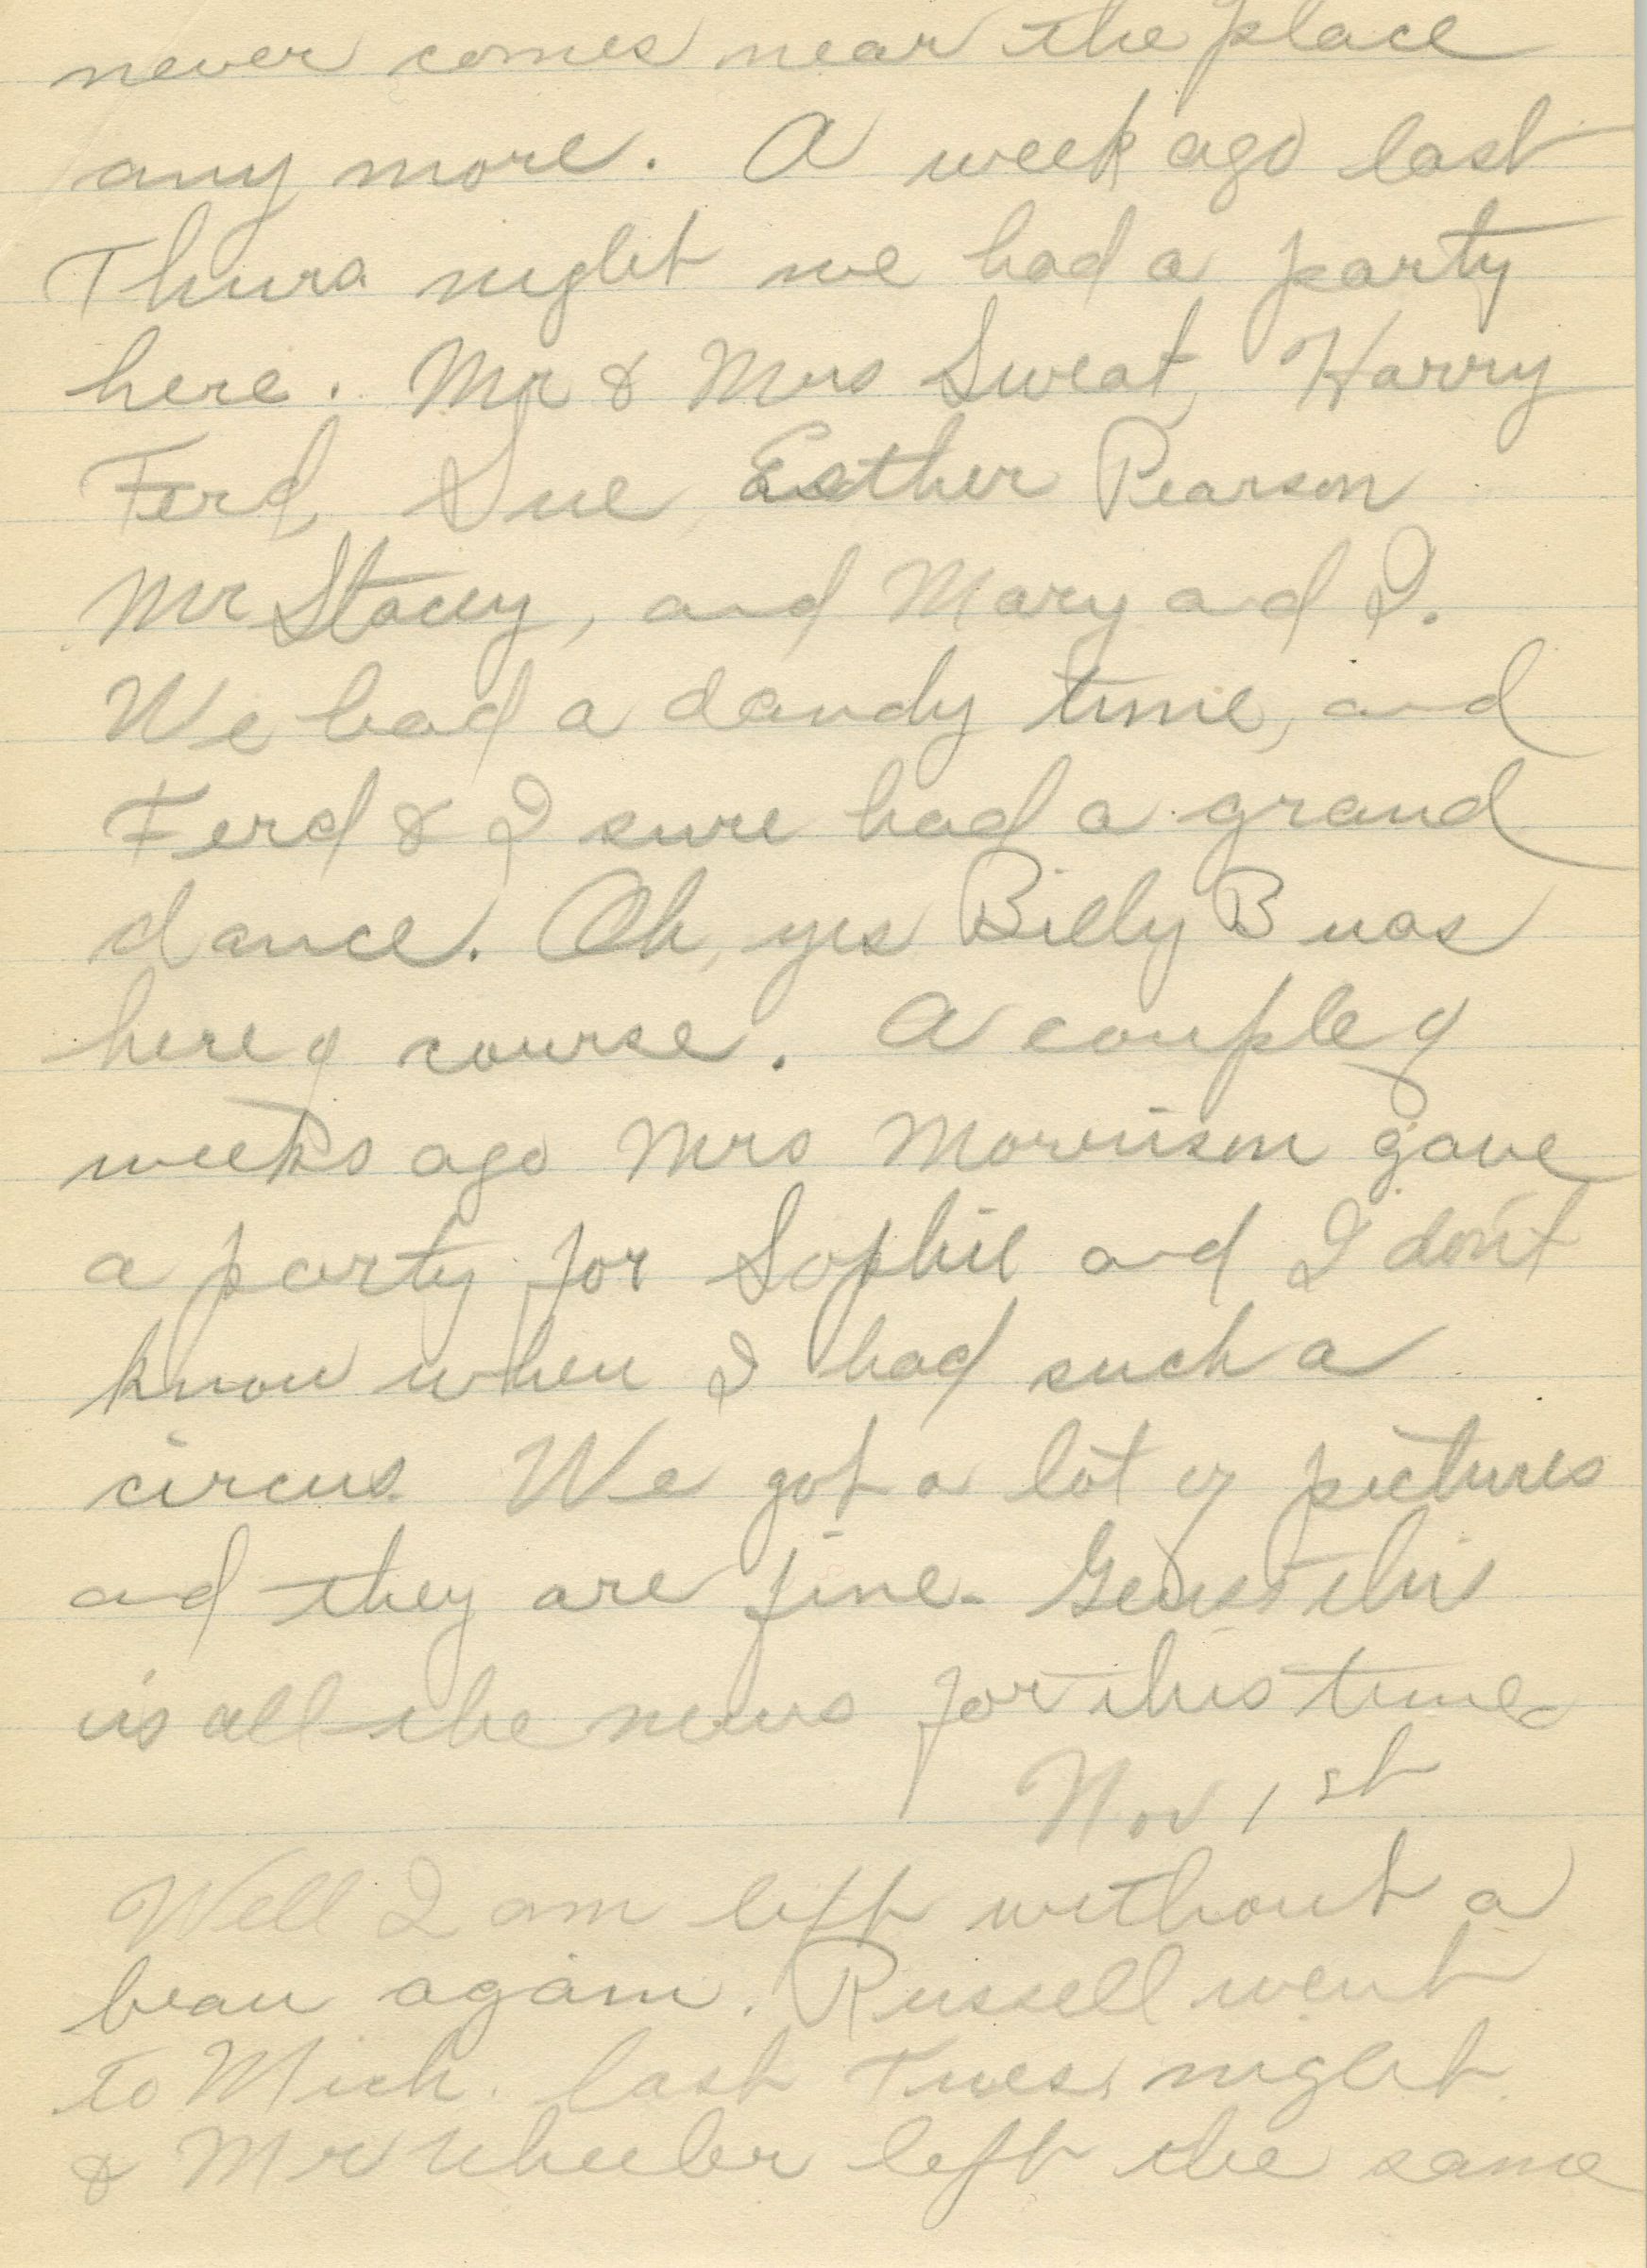 never comes near the place
any more. A week ago last
Thurs night we had a party
here. Mr & Mrs Sweat, Harry
Ferd, Sue, Esther Pearson
Mr Stacey, and Mary and I.
We had a dandy time, and
Ferd & I sure had a grand
dance. Oh, yes Billy B was
here of course. A couple of
weeks ago Mrs Morrison gave
a party for Sophie and I don't
know when I had such a
circus. We got a lot of pictures
and they are fine. Guess this
is all the news for this time
Nov 1st
Well I am left without a
beau again. Russell went
to Mich. last Tues. night
& Mr Wheeler left the same